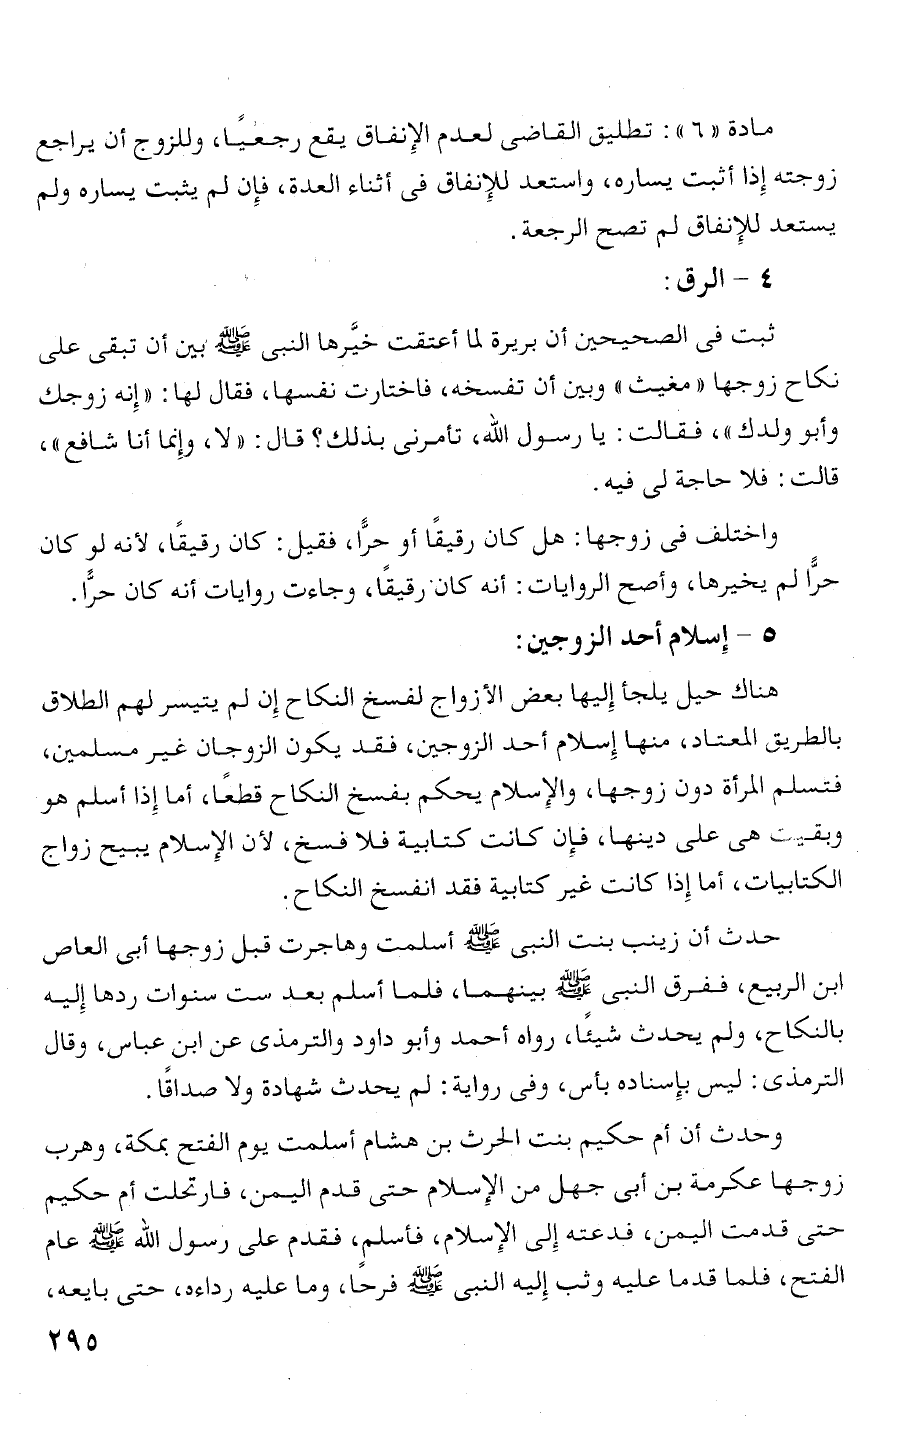 مادة «٦»: تطليق القاضى لعدم الإنفاق يقع رجعيًا، وللزوج أن يراجع
زوجته إذا أثبت يساره، واستعد للإنفاق فى أثناء العدة، فإن لم يثبت يساره ولم
يستعد للإنفاق لم تصح الرجعة.
٤ - الرق:
ثبت فى الصحيحين أن بريرة لما أعتقت خيَّرها النبى ﷺ بين أن تبقى على
نكاح زوجها «مغيث» وبين أن تفسخه، فاختارت نفسها، فقال لها: «إنه زوجك
وأبو ولدك»، فقالت: يا رسول الله، تأمرنى بذلك؟ قال: «لا، وإنما أنا شافع»،
قالت: فلا حاجة لى فيه.
واختلف فى زوجها: هل كان رقيقًا أو حرًّا، فقيل: كان رقيقًا، لأنه لو كان
حرًّا لم يخيرها، وأصح الروايات: أنه كان رقيقًا، وجاءت روايات أنه كان حرًّا.
٥ - إسلام أحد الزوجين:
هناك حيل يلجأ إليها بعض الأزواج لفسخ النكاح إن لم يتيسر لهم الطلاق
بالطريق المعتاد، منها إسلام أحد الزوجين، فقد يكون الزوجان غير مسلمين،
فتسلم المرأة دون زوجها، والإسلام يحكم بفسخ النكاح قطعًا، أما إذا أسلم هو
وبقيت هى على دينها، فإن كانت كتابية فلا فسخ، لأن الإسلام يبيح زواج
الكتابيات، أما إذا كانت غير كتابية فقد انفسخ النكاح.
حدث أن زينب بنت النبى ﷺ أسلمت وهاجرت قبل زوجها أبى العاص
ابن الربيع، ففرق النبى ﷺ بينهما، فلما أسلم بعد ست سنوات ردها إليه
بالنكاح، ولم يحدث شيئًا، رواه أحمد وأبو داود والترمذى عن ابن عباس، وقال
الترمذى: ليس بإسناده بأس، وفى رواية: لم يحدث شهادة ولا صداقًا.
وحدث أن أم حكيم بنت الحرث بن هشام أسلمت يوم الفتح بمكة، وهرب
زوجها عكرمة بن أبى جهل من الإسلام حتى قدم اليمن، فارتحلت أم حكيم
حتى قدمت اليمن، فدعته إلى الإسلام، فأسلم، فقدم على رسول الله ﷺ عام
الفتح، فلما قدما عليه وثب إليه النبى ﷺ فرحًا، وما عليه رداءه، حتى بايعه،
٢٩٥